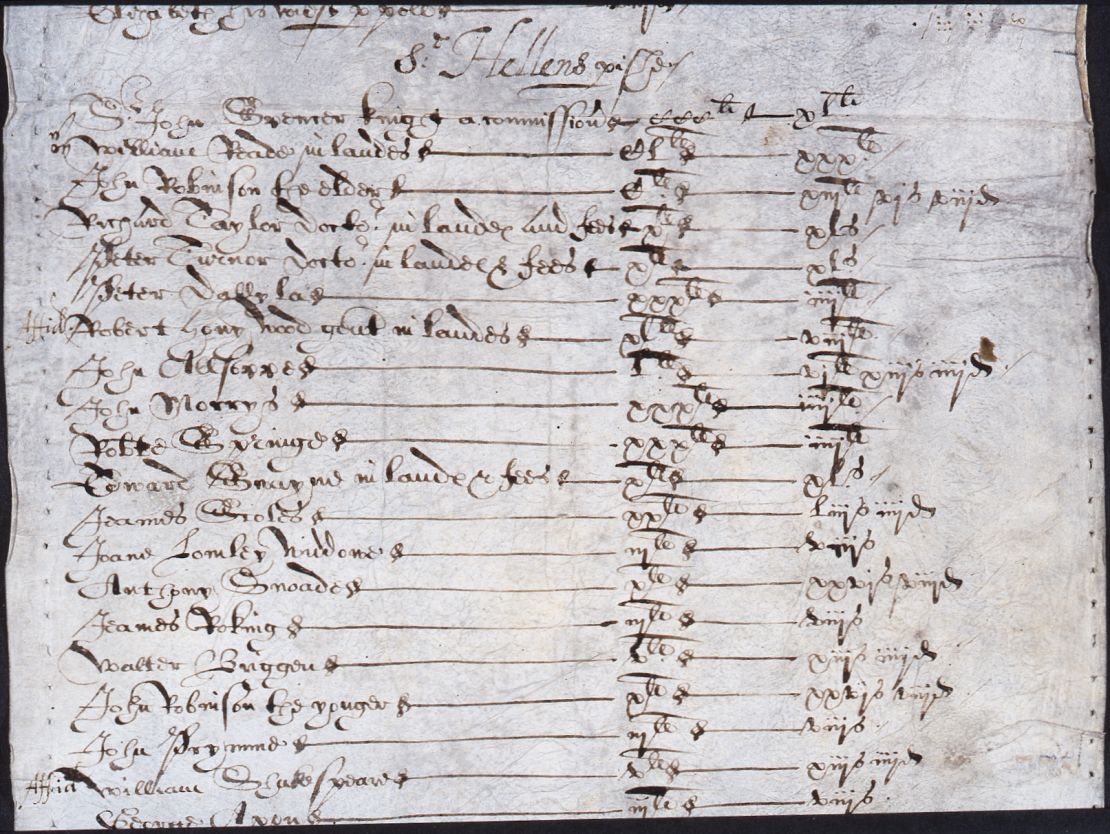 St Hellens pishe
Sr John Spencer knight a commissioner CCCli xlli
William Reade in landes CLli xxxli
John Robinson the elder Cli xiijli vjs viijd
Richard Taylor docto in landes and fees xli xls
Peter Turnor docto in landes & fees xli xls
Peter Dallyla xxxli iiijli
Affid Robert Honywood gent in landes xlli viijli
John Allsoppe Lli vjli xiijs iiijd
John Morrys xxxli iiijli
Robte Springe xxxli iiijli
Edward Swayne in landes & fees xli xls
Jeames Scoles xxli liijs iiijd
Joane Lomley widdowe iijli viijs
Anthony Snoade xli xxvjs viijd
Jeames Roking iijli viijs
Walter Briggen vli xiijs iiijd
John Robinson the yonger xli xxvjs viijd
John Prymme iijli viijs
Affid William Shakespeare vli xiijs iiijd
George Axon iijli viijs